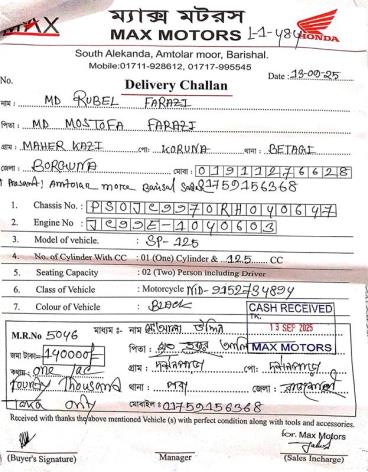 MAX
ম্যাক্স মটরস
MAX MOTORS 1-1-484
HONDA
South Alekanda, Amtolar moor, Barishal.
Mobile:01711-928612, 01717-995545
No.
Delivery Challan
Date : 13-09-25
নাম : MD RUBEL FARAZI
পিতা : MD MOSTOFA FARAZI
গ্রাম : MAHER KAZI পো: KORUNA থানা : BETAGI
জেলা : BORGUNA মোবা : 01911276628
Amtolar more Barisal Sadar 01759156368
1. Chassis No. : PS0JC9970RH040647
2. Engine No : JC99E-1040603
3. Model of vehicle. : SP-125
4. No. of Cylinder With CC : 01 (One) Cylinder & 12.5 CC
5. Seating Capacity : 02 (Two) Person including Driver
6. Class of Vehicle : Motorcycle NID-9152734894
7. Colour of Vehicle : BLACK
CASH RECEIVED
TK.
13 SEP 2025
MAX MOTORS
M.R No 5046 মাধ্যম :- নাম
জমা টাকা= 140000/- পিতা :
কথায় One lac গ্রাম : পো:
fourty Thousand থানা : জেলা :
Taka only মোবাইল : 01759156368
Received with thanks the above mentioned Vehicle (s) with perfect condition along with tools and accessories.
for. Max Motors
(Buyer's Signature) Manager (Sales Incharge)